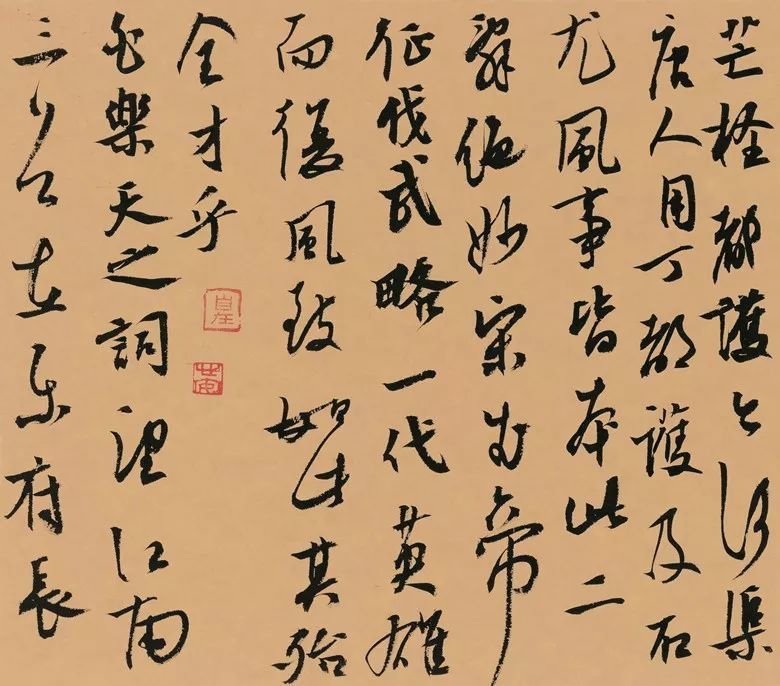 都護渠
唐人用丁都護及石
尤風事皆本此二
辭絕妙宋武帝
征伐武略一代英雄
而復風致如此其殆
全才乎
白樂天之詞望江南
三首在樂府長